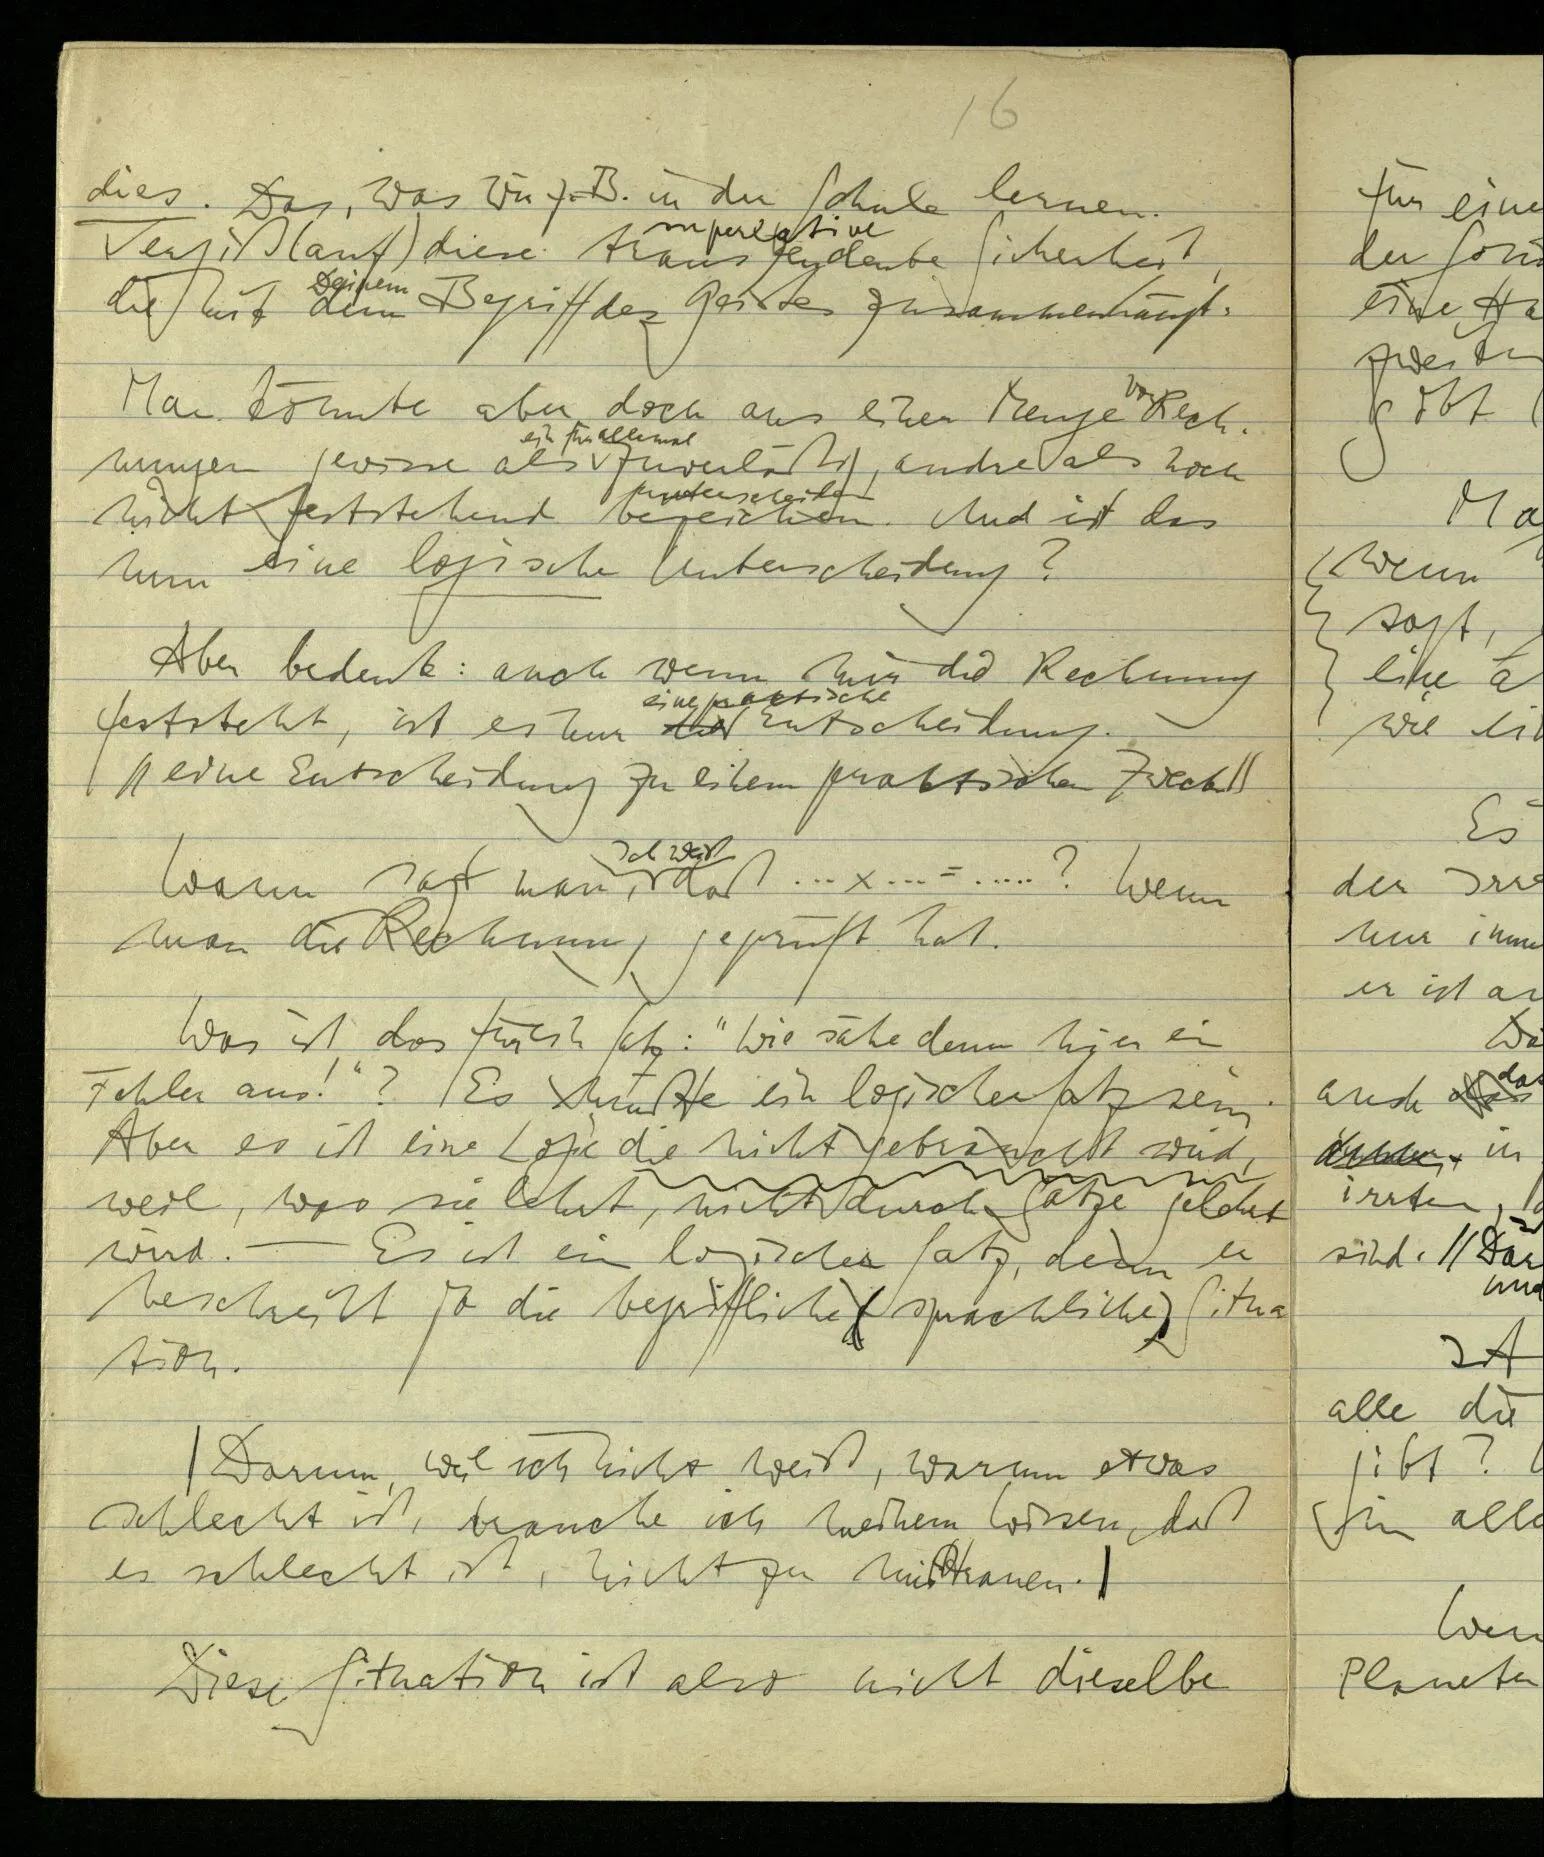 16
dies. Das, was wir z.B. in der Schule lernen.
superlative
Vergiß (auf) diese transzendente Sicherheit,
Deinem
die mit dem Begriff des Geistes zusammenhängt.
Man könnte aber doch aus einer Menge von Rech-
ein für allemal
nungen gewisse als zuverläßig, andre als noch
unterscheiden
nicht feststehend bezeichnen. Und ist das
nun eine logische Unterscheidung?
Aber bedenk: auch wenn mir die Rechnung
eine praktische
feststeht, ist es nur Entscheidung.
// eine Entscheidung zu einem praktischen Zweck //
ich weiß
Wann sagt man, daß ... x ... = .....? Wenn
man die Rechnung geprüft hat.
Was ist das für ein Satz: "Wie sähe denn hier ein
Fehler aus!"? Es müßte ein logischer Satz sein.
Aber es ist eine Logik die nicht gebraucht wird,
weil, was sie lehrt, nicht durch Sätze gelehrt
wird. — Es ist ein logischer Satz, denn er
beschreibt ja die begriffliche (sprachliche) Situa
tion.
| Darum, weil ich nicht weiß, warum etwas
schlecht ist, brauche ich meinem Wissen, daß
es schlecht ist, nicht zu mißtrauen. |
Diese Situation ist also nicht dieselbe
für eine
der
eine
gibt
wenn
sagt,
eine
wie
Es
der
nur
er ist
auch das
in
irrten,
sind. //
Ist
alle die
gibt?
Planeten